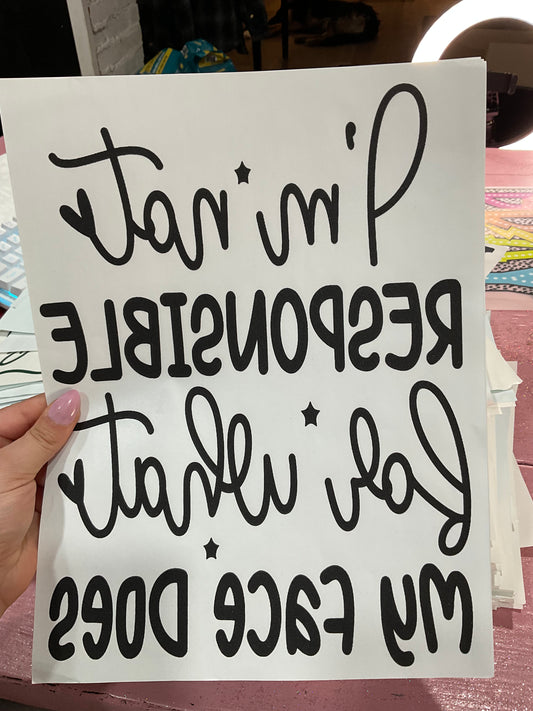 I'm not
RESPONSIBLE
for what
My Face Does